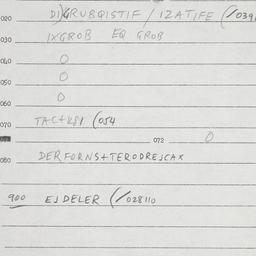 020 DIXGRUBQISTIF / IZATIFE (/0391
030 IXGROB EQ GROB
040 O
050 O
060 O
070 TAC+KPI (054
072 O
080 DERFORNS+TERODREJCAX
900 EJDELER (/028110